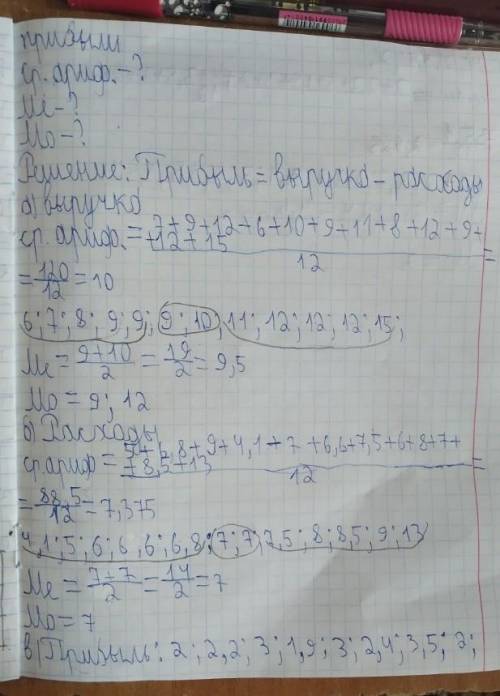 прибыли
ср. ариф. - ?
Ме - ?
Мо - ?
Решение: Прибыль = выручка - расходы
а) выручка
ср. ариф. = 7+9+12+6+10+9+11+8+12+9+
+12+15
12
=
= 120/12 = 10
6; 7; 8; 9; 9; 9; 10; 11; 12; 12; 12; 15;
Ме = 9+10/2 = 19/2 = 9,5
Мо = 9; 12
б) Расходы
ср. ариф = 6,8+9+4,1+7+6,6+7,5+6+8+7+
+8,5+13
12
=
= 88,5/12 = 7,375
4,1; 5; 6; 6,6; 6,8; 7; 7; 7,5; 8; 8,5; 9; 13
Ме = 7+7/2 = 14/2 = 7
Мо = 7
в) Прибыль: 2; 2,2; 3; 1,9; 3; 2,4; 3,5; 2;